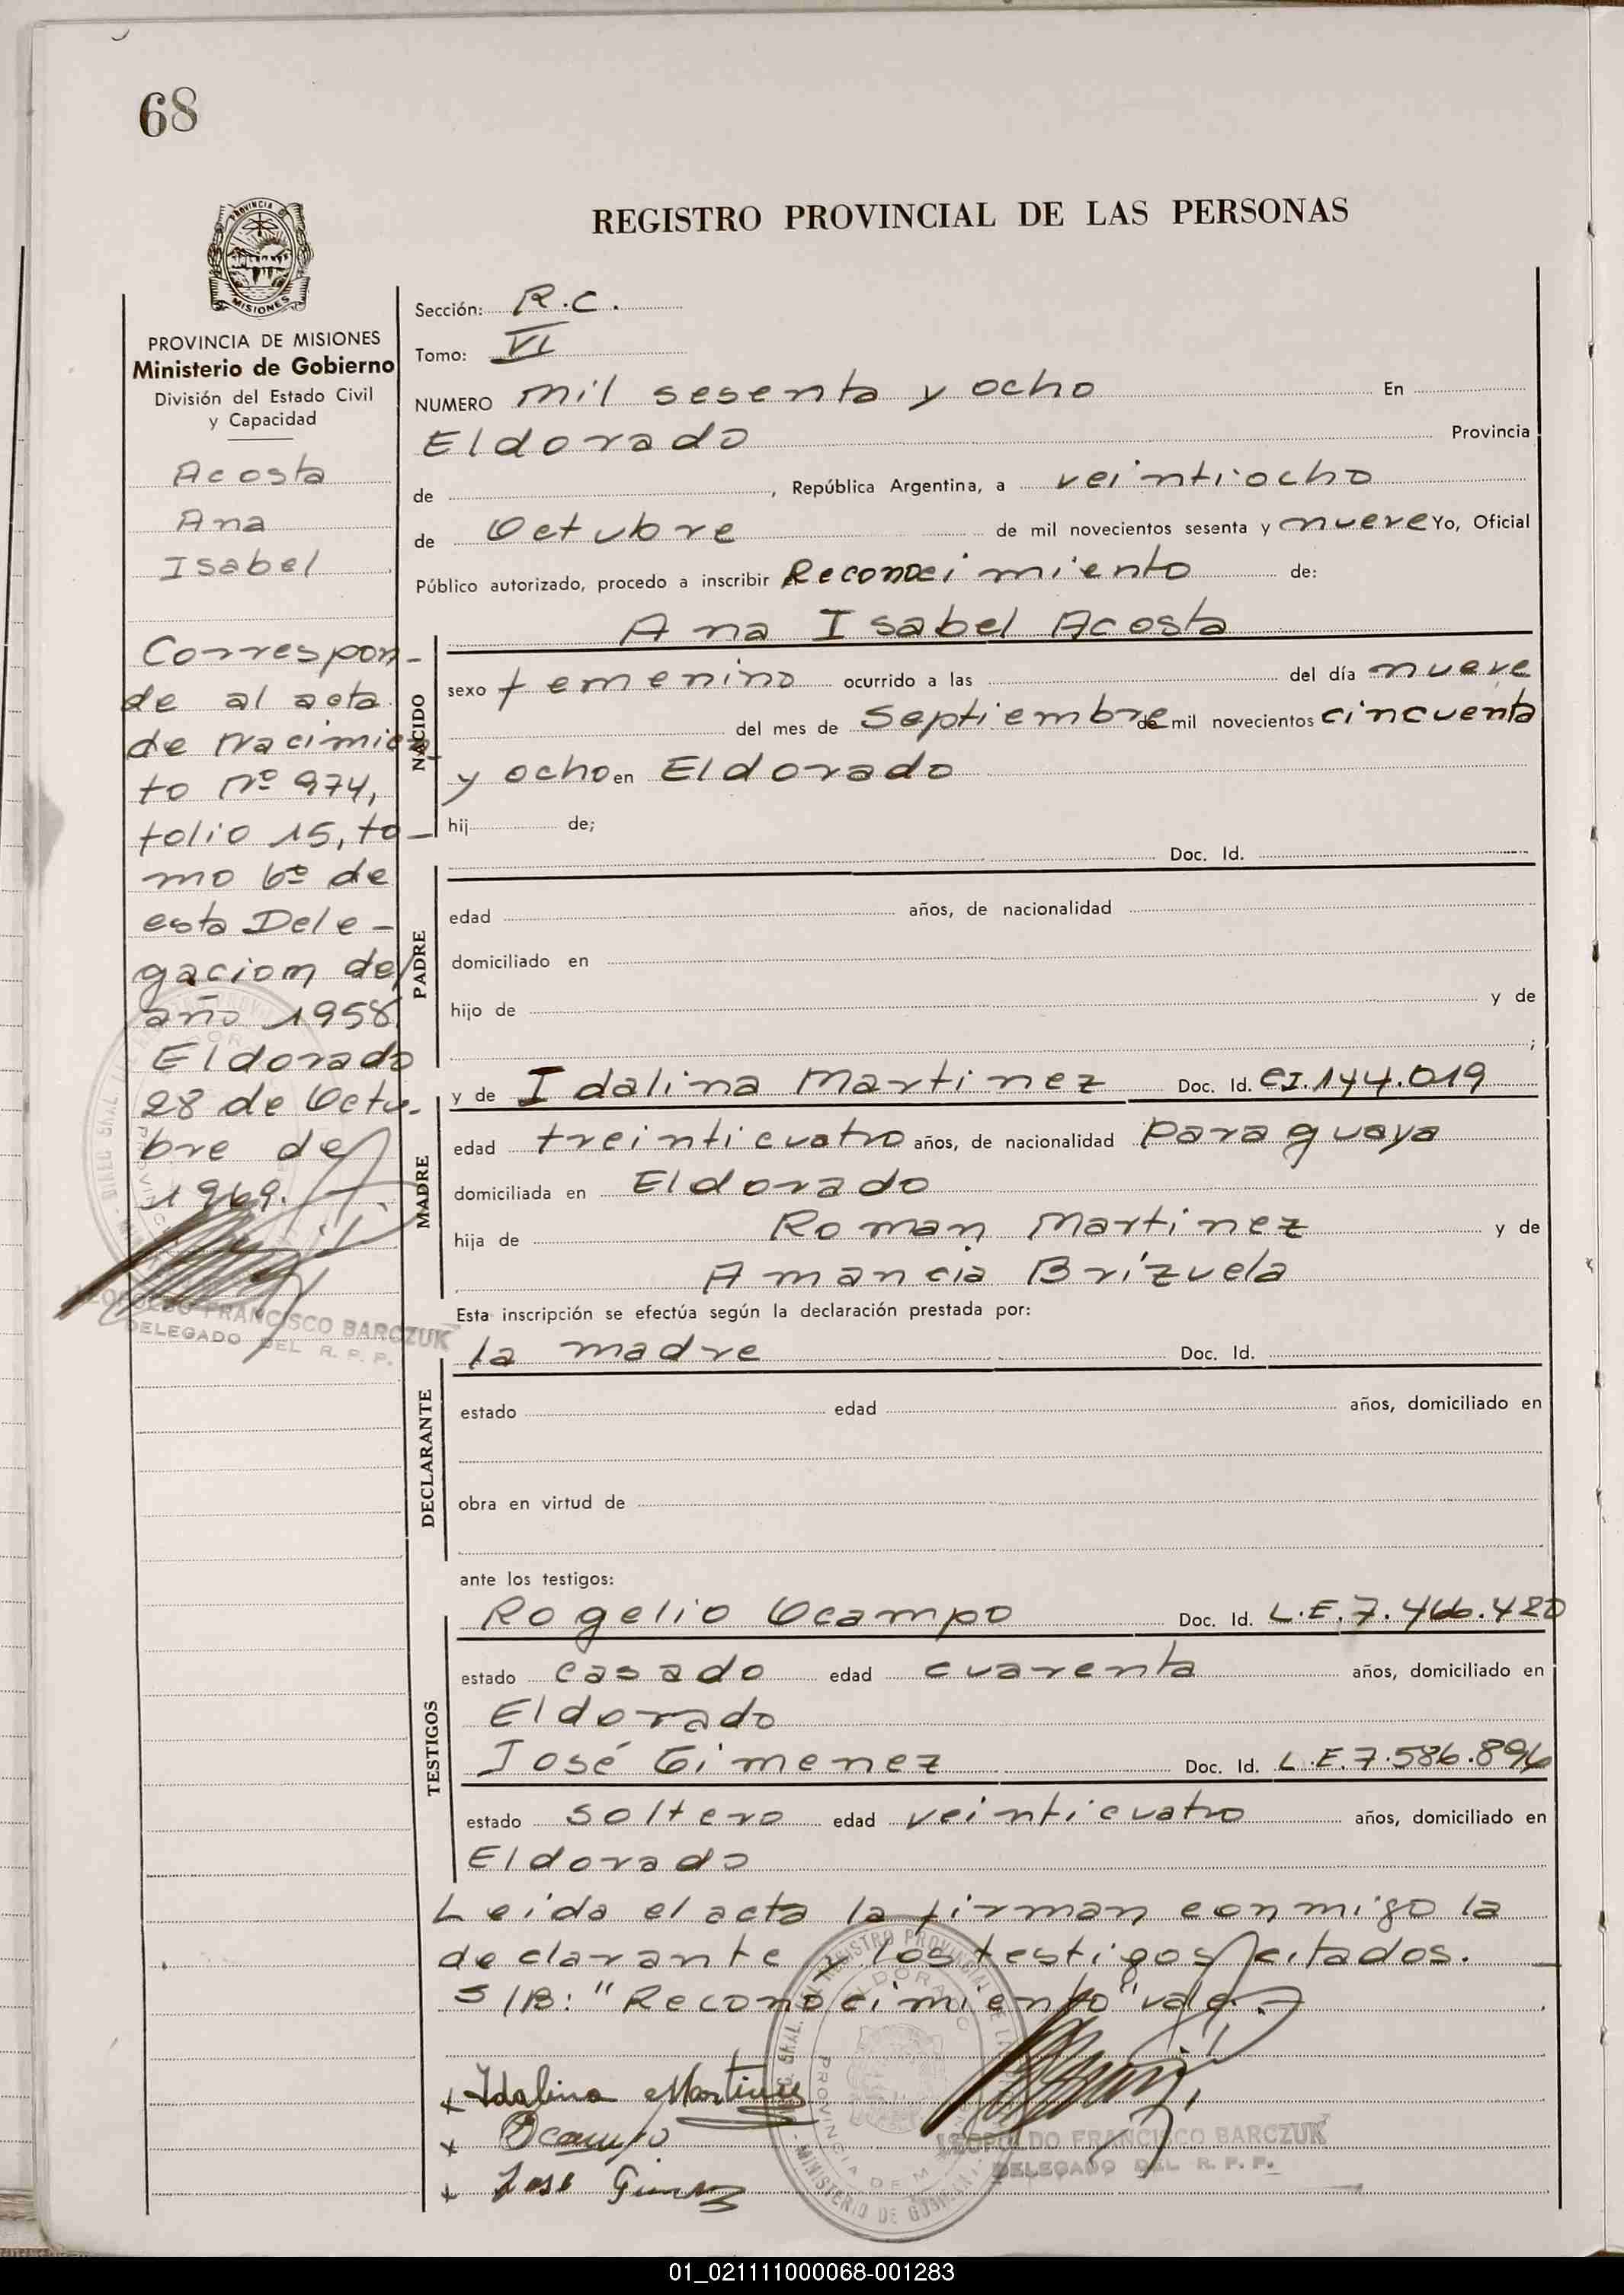 68
PROVINCIA DE
MISIONES
REGISTRO PROVINCIAL DE LAS PERSONAS
PROVINCIA DE MISIONES
Ministerio de Gobierno
División del Estado Civil
y Capacidad
Acosta
Ana
Isabel
Correspon-
de al acta
de Nacimien-
to Nº 974,
folio 15, to-
mo 6º de
esta Dele-
gacion del
año 1958.
Eldorado
28 de Octu-
bre de
1969.
LEOPOLDO FRANCISCO BARCZUK
DELEGADO DEL R. P. P.
Sección: R.C.
Tomo: VI
NUMERO mil sesenta y ocho En
Eldorado Provincia
de , República Argentina, a veintiocho
de Octubre de mil novecientos sesenta y nueve Yo, Oficial
Público autorizado, procedo a inscribir Reconocimiento de:
Ana Isabel Acosta
NACIDO
sexo femenino ocurrido a las del día nueve
del mes de Septiembre de mil novecientos cincuenta
y ocho en Eldorado
hij de;
Doc. Id.
PADRE
edad años, de nacionalidad
domiciliado en
hijo de y de
;
y de Idalina Martinez Doc. Id. CI.144.019
MADRE
edad treinticuatro años, de nacionalidad paraguaya
domiciliada en Eldorado
hija de Roman Martinez y de
Amancia Brízuela
Esta inscripción se efectúa según la declaración prestada por:
la madre Doc. Id.
DECLARANTE
estado edad años, domiciliado en
obra en virtud de
ante los testigos:
Rogelio Ocampo Doc. Id. L.E.7.466.420
TESTIGOS
estado casado edad cuarenta años, domiciliado en
Eldorado
José Gimenez Doc. Id. L.E.7.586.896
estado soltero edad veinticuatro años, domiciliado en
Eldorado
Leida el acta la firman conmigo la
declarante y los testigos citados.
S/B: "Reconocimiento" vale.
x Idalina Martinez
x Ocampo
x Jose Gimenez
LEOPOLDO FRANCISCO BARCZUK
DELEGADO DEL R. P. P.
01_021111000068-001283